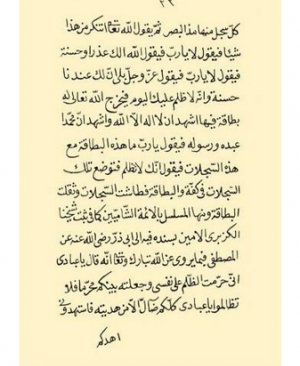 ٢٢
كل سجل منها مدّ البصر ثم يقول الله تعالى اتنكر من هذا
شيئا فيقول لا يارب فيقول الله الك عذر او حسنة
فيقول لا يارب فيقول عزّ وجل بلى انّ لك عندنا
حسنة وانه لا ظلم عليك اليوم فيخرج الله تعالى له
بطاقة فيها اشهد ان لا اله الا الله واشهد ان محمدا
عبده ورسوله فيقول يارب ما هذه البطاقة مع
هذه السجلات فيقول انّك لا تظلم فتوضع تلك
السجلات فى كفّة والبطاقة فطاشت السجلات وثقلت
البطاقة ومنها المسلسل بالائمة الشاميين كما فى ثبت شيخنا
الكزبرى الامين بسنده فيه الى ابى ذرّ رضى الله عنه عن
المصطفى فيما يروى عن الله تبارك وتعالى انه قال يا عبادى
انّى حرّمت الظلم على نفسى وجعلته بينكم محرّما فلا
تظالموا يا عبادى كلكم ضالّ الا من هديته فاستهدونى
اهدكم